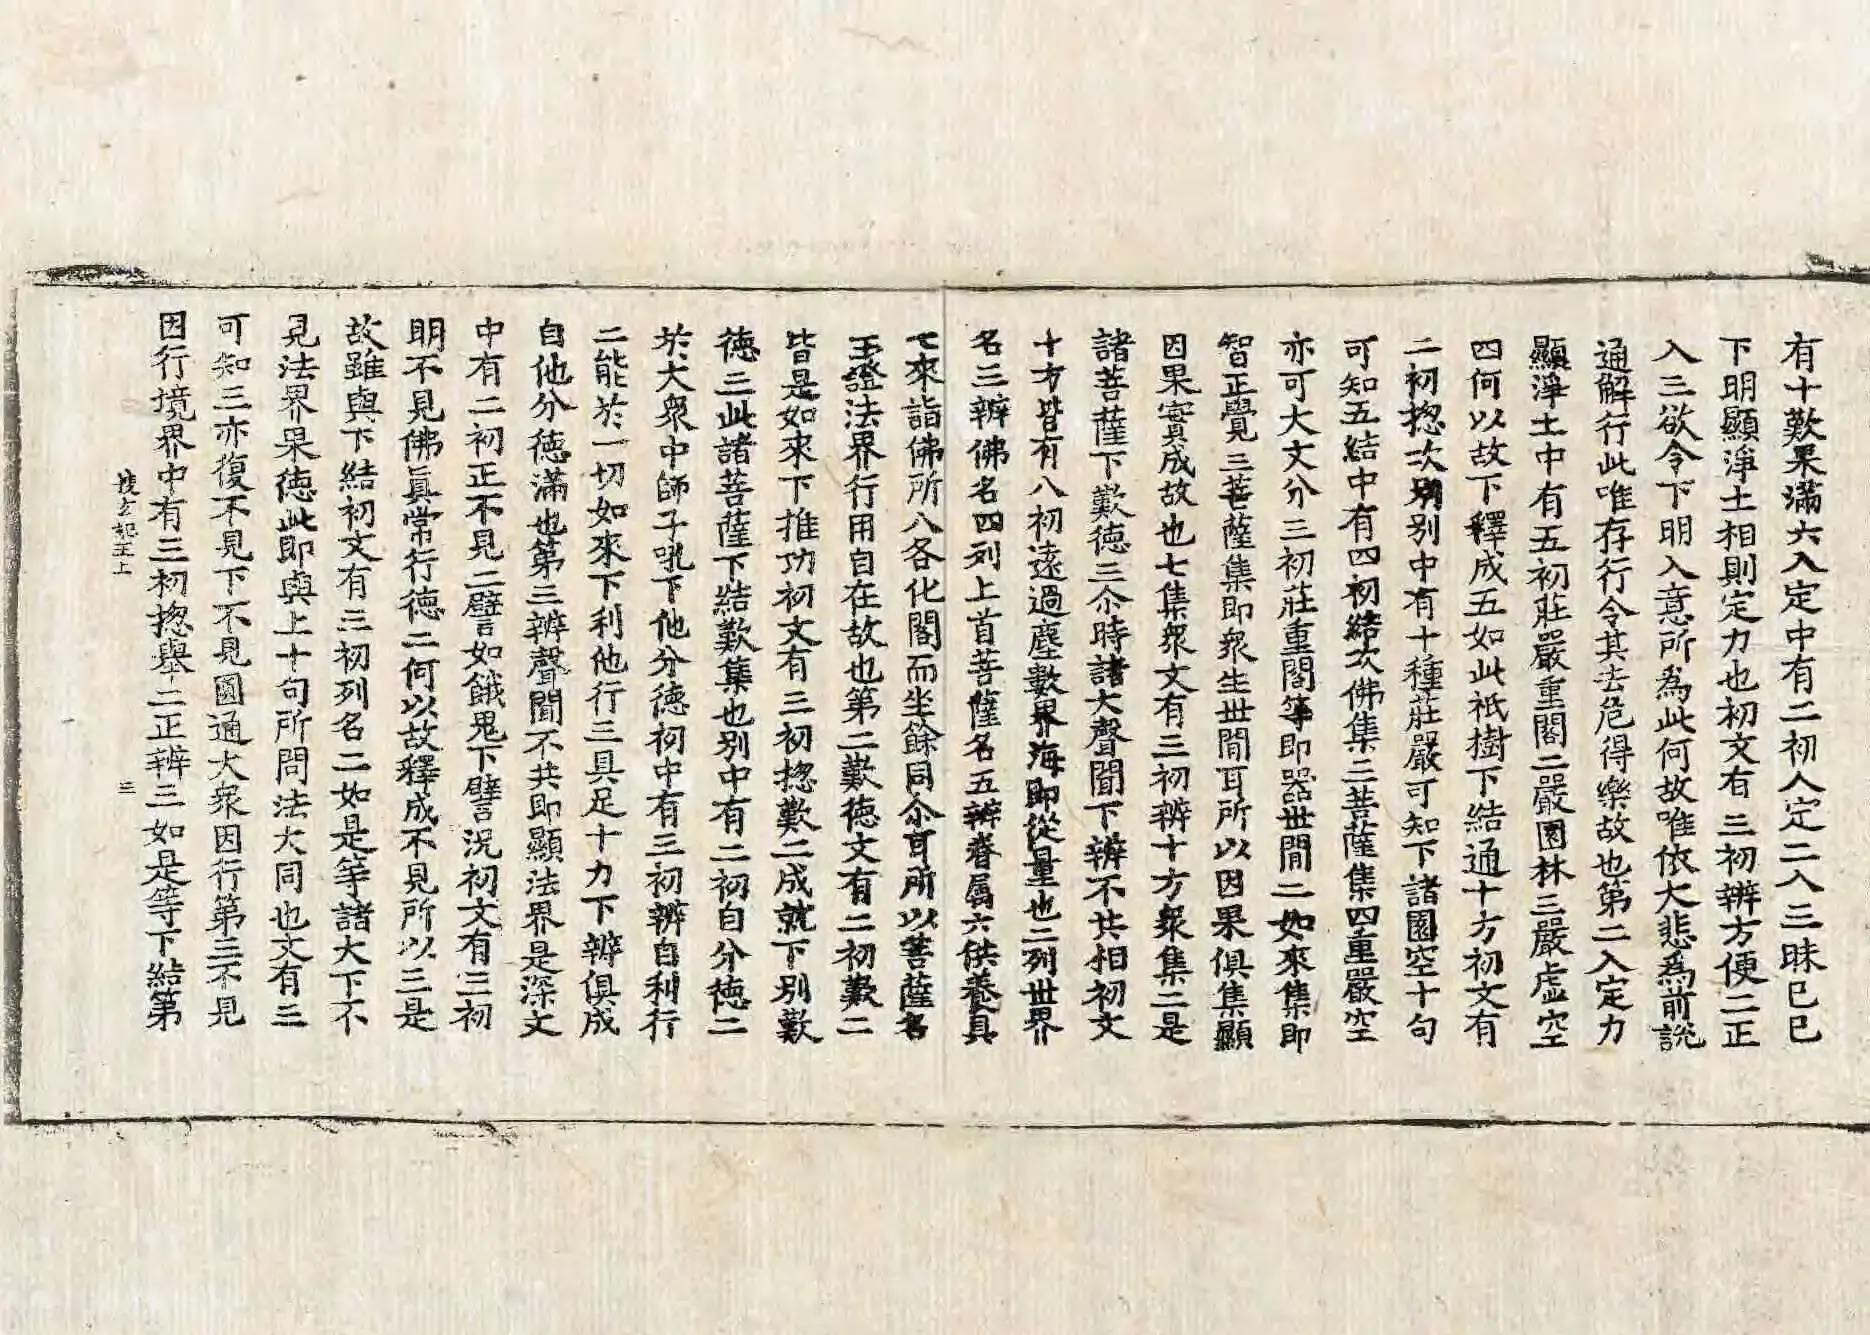 有十歎果滿六入定中有二初入定二入三昧已已
下明顯淨土相則定力也初文有三初辨方便二正
入三欲令下明入意所為此何故唯依大悲為前說
通解行此唯存行令其去危得樂故也第二入定力
顯淨土中有五初莊嚴重閣二嚴園林三嚴虛空
四何以故下釋成五如此祇樹下結通十方初文有
二初揔次別別中有十種莊嚴可知下諸園空十句
可知五結中有四初結次佛集三菩薩集四重嚴空
亦可大文分三初莊重閣等即器世間二如來集即
智正覺三菩薩集即衆生世間耳所以因果俱集顯
因果實成故也七集衆文有三初辨十方衆集二是
諸菩薩下歎德三尒時諸大聲聞下辨不共相初文
十方皆有八初遠過塵數界海即從量也二列世界
名三辨佛名四列上首菩薩名五辨眷属六供養具
七來詣佛所八各化閣而坐餘同尒可所以菩薩名
王證法界行用自在故也第二歎德文有二初歎二
皆是如來下推功初文有三初揔歎二成就下別歎
德三此諸菩薩下結歎集也別中有二初自分德二
於大衆中師子吼下他分德初中有三初辨自利行
二能於一切如來下利他行三具足十力下辨俱成
自他分德滿也第三辨聲聞不共即顯法界是深文
中有二初正不見二譬如餓鬼下譬況初文有三初
明不見佛真常行德二何以故釋成不見所以三是
故雖與下結初文有三初列名二如是等諸大下不
見法界果德此即與上十句所問法大同也文有三
可知三亦復不見下不見圓通大衆因行第三不見
因行境界中有三初揔舉二正辨三如是等下結第
搜玄記五上
三